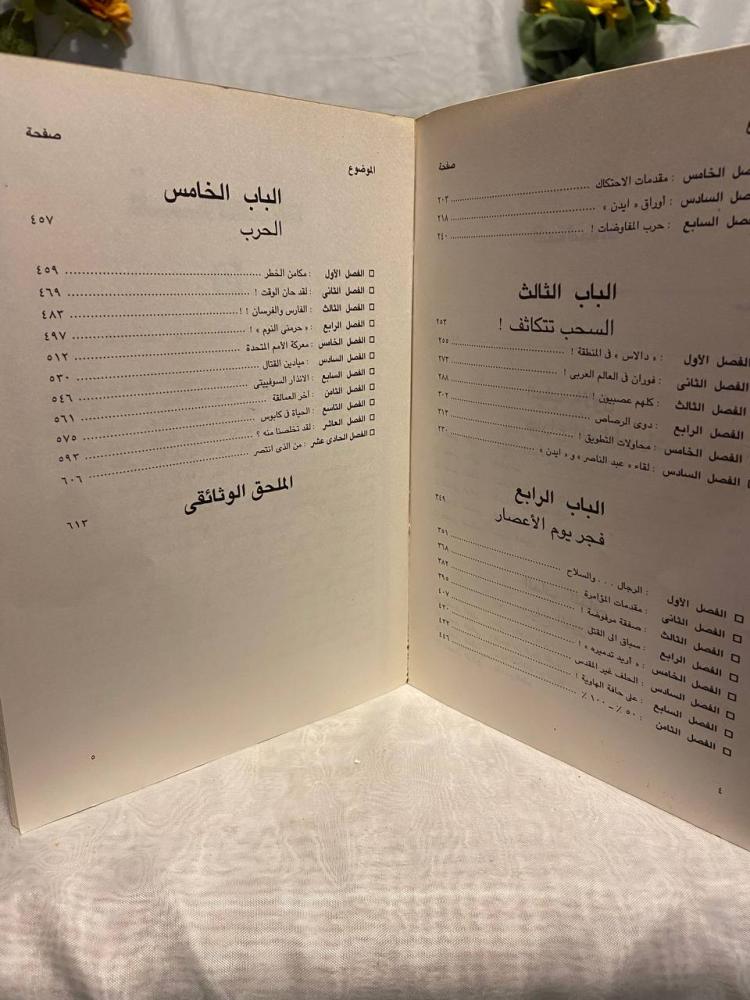 صفحة
الفصل الخامس : مقدمات الاحتكاك ٢٠٣
الفصل السادس : أوراق « ايدن » ٢١٨
الفصل السابع : حرب المفاوضات ! ٢٤٠
الباب الثالث
السحب تتكاثف ! ٢٥٣
الفصل الأول : « دالاس » فى المنطقة ! ٢٥٥
الفصل الثانى : فوران فى العالم العربى ! ٢٧٣
الفصل الثالث : كلهم عصبيون ! ٢٨٨
الفصل الرابع : دوى الرصاص ٣٠٢
الفصل الخامس : محاولات التطويق ! ٣١٣
الفصل السادس : لقاء « عبد الناصر » و « ايدن » ٣٣٠
الباب الرابع
فجر يوم الأعصار ٣٤٩
الفصل الأول : الرجال . . . والسلاح ٣٥١
الفصل الثانى : مقدمات المؤامرة ٣٦٨
الفصل الثالث : صفقة مرفوضة ! ٣٨٢
الفصل الرابع : سباق الى القتل ٣٩٥
الفصل الخامس : « أريد تدميره » ! ٤٠٧
الفصل السادس : الحلف غير المقدس ٤٢٠
الفصل السابع : على حافة الهاوية ! ٤٣٢
الفصل الثامن : ٥٠ ٪ – ١٠٠ ٪ ٤٤٦
٤
الموضوع صفحة
الباب الخامس
الحرب ٤٥٧
الفصل الأول : مكامن الخطر ٤٥٩
الفصل الثانى : لقد حان الوقت ! ٤٦٩
الفصل الثالث : الفارس والفرسان ! ! ٤٨٣
الفصل الرابع : « حرمنى النوم » ! ٤٩٧
الفصل الخامس : معركة الأمم المتحدة ٥١٢
الفصل السادس : ميادين القتال ٥٣٠
الفصل السابع : الانذار السوفييتى ٥٤٦
الفصل الثامن : آخر العمالقة ٥٦١
الفصل التاسع : الحياة فى كابوس ٥٧٥
الفصل العاشر : لقد تخلصنا منه ؟ ٥٩٣
الفصل الحادى عشر : من الذى انتصر ٦٠٦
الملحق الوثائقى
٦١٣
٥